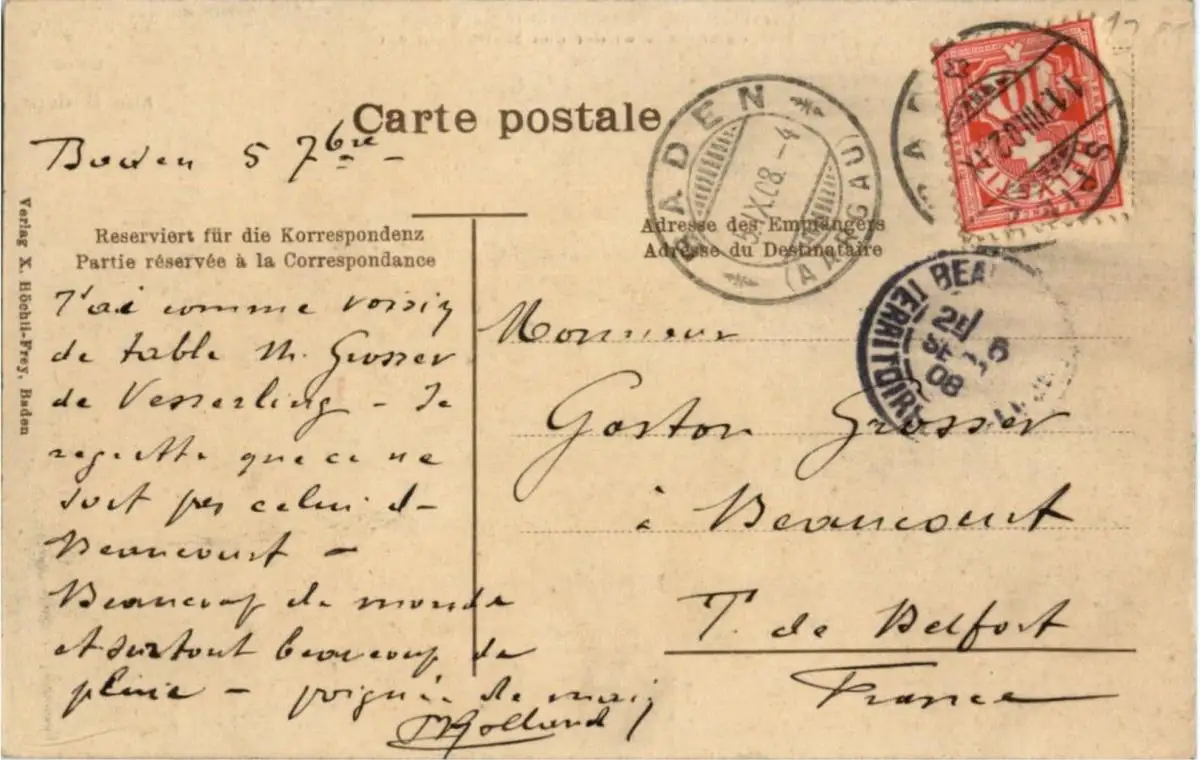 Carte postale
Baden 5 7bre
Reserviert für die Korrespondenz
Partie réservée à la Correspondance
Adresse des Empfängers
Adresse du Destinataire
J'ai comme voisin
de table M. Grosser
de Wesserling - Je
regrette que ce ne
soit pas celui d-
Beaucourt -
Beaucoup de monde
et surtout beaucoup de
pluie - poignée de main
Monsieur
Gaston Grosser
à Beaucourt
T. de Belfort
France
Verlag X. Höchli-Frey, Baden
BADEN
IX.08.-4
(AARGAU)
10
BEAU
TERRITOIRE
2E
SE 6
08